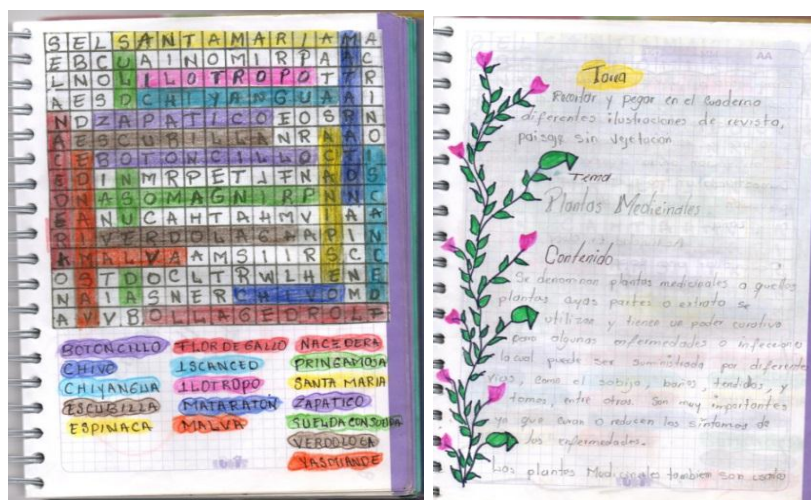 S E L S A N T A M A R I A M A
E B C U A I N O M I R P A A C
L N O L I L O T R O P O T T R
A E S D C H I Y A N G U A A I
N D Z A P A T I C O E O S R N
E S C U B I L L A N R
B O T O N C I L L O
A S O M A G N I R P
N U C A H T A H M V I A
V E R D O L A G
M A L V A A M S I I R S C
S T D O C L T R W L H E
N A I A S N E R C H I V O M
A V V B O L L A G E D R O L F
BOTONCILLO FLOR DE GALLO NACEDERA
CHIVO ISCANCED PRINGAMOSA
CHIYANGUA ILOTROPO SANTA MARIA
ESCUBILLA MATARATÓN ZAPATICO
ESPINACA MALVA SUELDA CONSOLIDA
VERDOLOGA
YASMIANDE
Tarea
Recortar y pegar en el cuaderno
diferentes ilustraciones de revista,
paisaje sin vejetacion
Tema
Plantas Medicinales
Contenido
Se denominan plantas medicinales a quellos
plantas cuyas partes o extrato se
utilizan y tienen un poder curativo
para algunas enfermedades o infecciones
la cual puede ser suministrada por diferentes
vias, como el sobijo, baños, tendidos, y
tomas, entre otros. Son muy importantes
ya que curan o reducen los sintomas de
las enfermedades.
Las plantes Medicinales tambien son